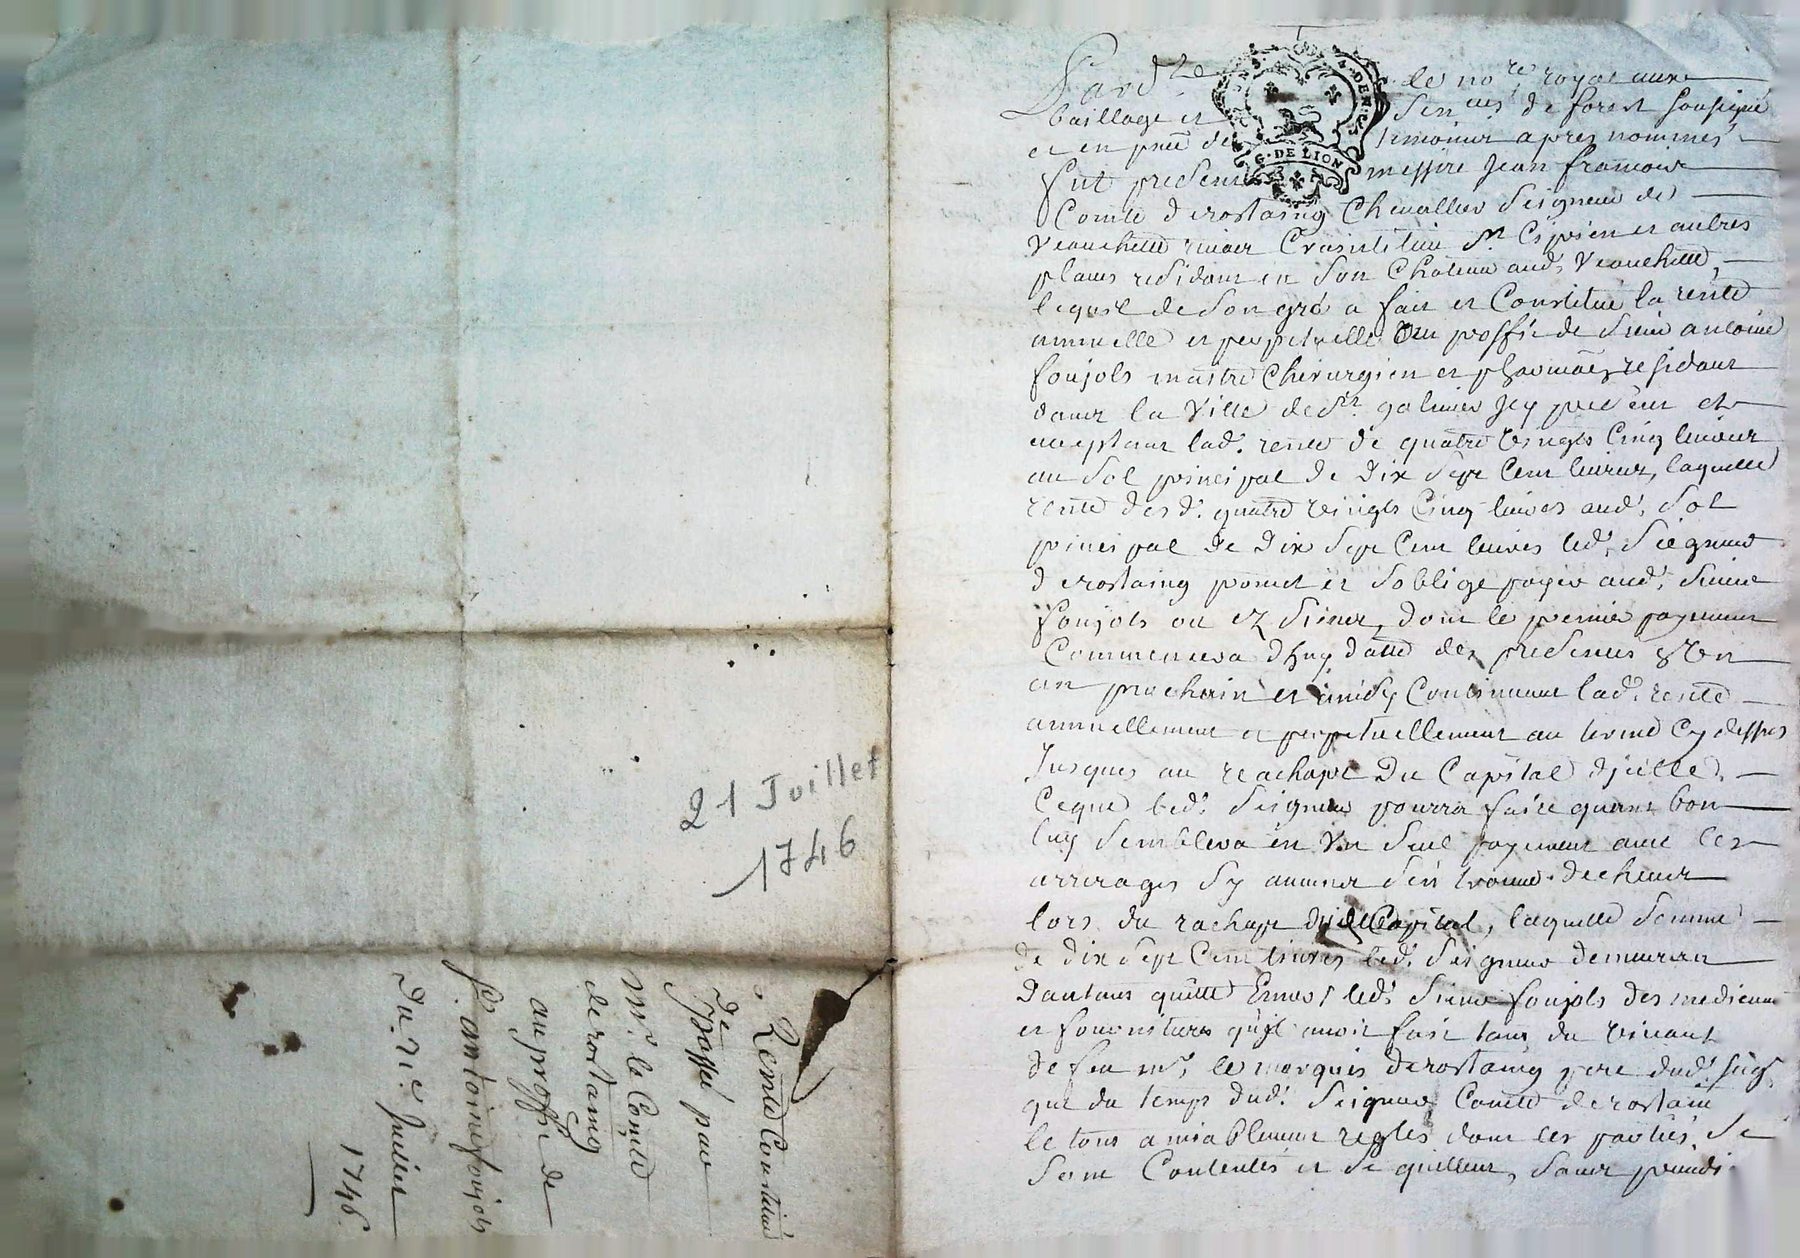 21 Juillet
1746
Rente Constitué
de
passé par
Mr. le Comte
de rostaing
au proffit de
Sr. antoine foujols
Du 21e Juillet
1746.
G. DE LION
4. DEN. R
Pard.
le nore royal aux
baillage et Senées de forest soussigné
et en pnce des temoins apres nommés
fut present messire Jean francois
Comte derostaing Chevallier Seigneur de
Veauchette rivier St Ciprien et autres
places residant en son Château aud. Veauchette,
lequel de son gré a fait et Constitué la rente
annuelle et perpetuelle au proffit de Sieur antoine
foujols maitre Chirurgien et pharmacien residant
dans la Ville de St. galmier Icy present et
acceptant lad. rente de quatre vingts Cinq livres
au Sol principal de Dix Sept Cent livres, laquelle
rente desd. quatre vingts Cinq livres aud. Sol
principal de Dix Sept Cent livres led. Seigneur
derostaing promet et soblige payer aud. Sieur
foujols ou ez siens, dont le premier payement
Commencera dhuy datte des presentes en un
an prochain et ainsy Continuer lad. rente
annuellement et perpetuellement au terme Cy dessus
Jusques au reachapt Du Capital djcelle,
Ceque led. Seigneur pourra faire quand bon
luy Semblera en Vn Seul payement avec les
arrerages sy aucuns sen trouve decheus
lors du rachapt dud Capital, laquelle Somme
de Dix Sept Cent livres led. Seigneur demeurera
Dautant quitte Envers led. Sieur foujols des medicaments
et fournitures quil avoit fait tant du vivant
de feu mr. le marquis derostaing pere dud. seigr
que du temps dud. Seigneur Comte derostaing
le tout amiablement reglés dont les parties se
sont Contentés et se quittent, sans prejudi